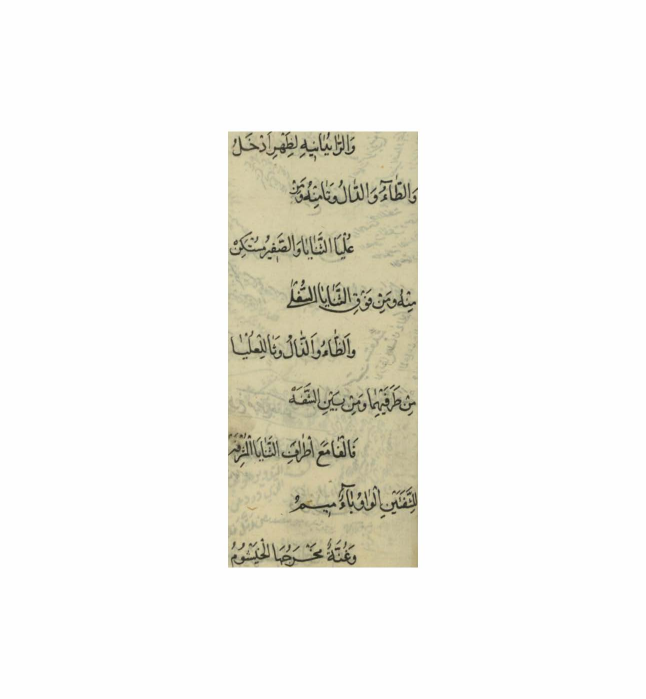 وَالرَّا يُدَانِيهِ لِظَهْرٍ أَدْخَلُ
وَالطَّاءُ وَالدَّالُ وَتَا مِنْهُ وَمِنْ
عُلْيَا الثَّنَايَا وَالصَّفِيرُ مُسْتَكِنْ
مِنْهُ وَمِنْ فَوْقِ الثَّنَايَا السُّفْلَى
وَالظَّاءُ وَالذَّالُ وَثَا لِلْعُلْيَا
مِنْ طَرَفَيْهِمَا وَمِنْ بَيْنِ الشَّفَهْ
فَالْفَا مَعَ أَطْرَافِ الثَّنَايَا الْمُشْرِفَهْ
لِلشَّفَتَيْنِ الْوَاوُ بَاءٌ مِيمُ
وَغُنَّةٌ مَخْرَجُهَا الْخَيْشُومُ